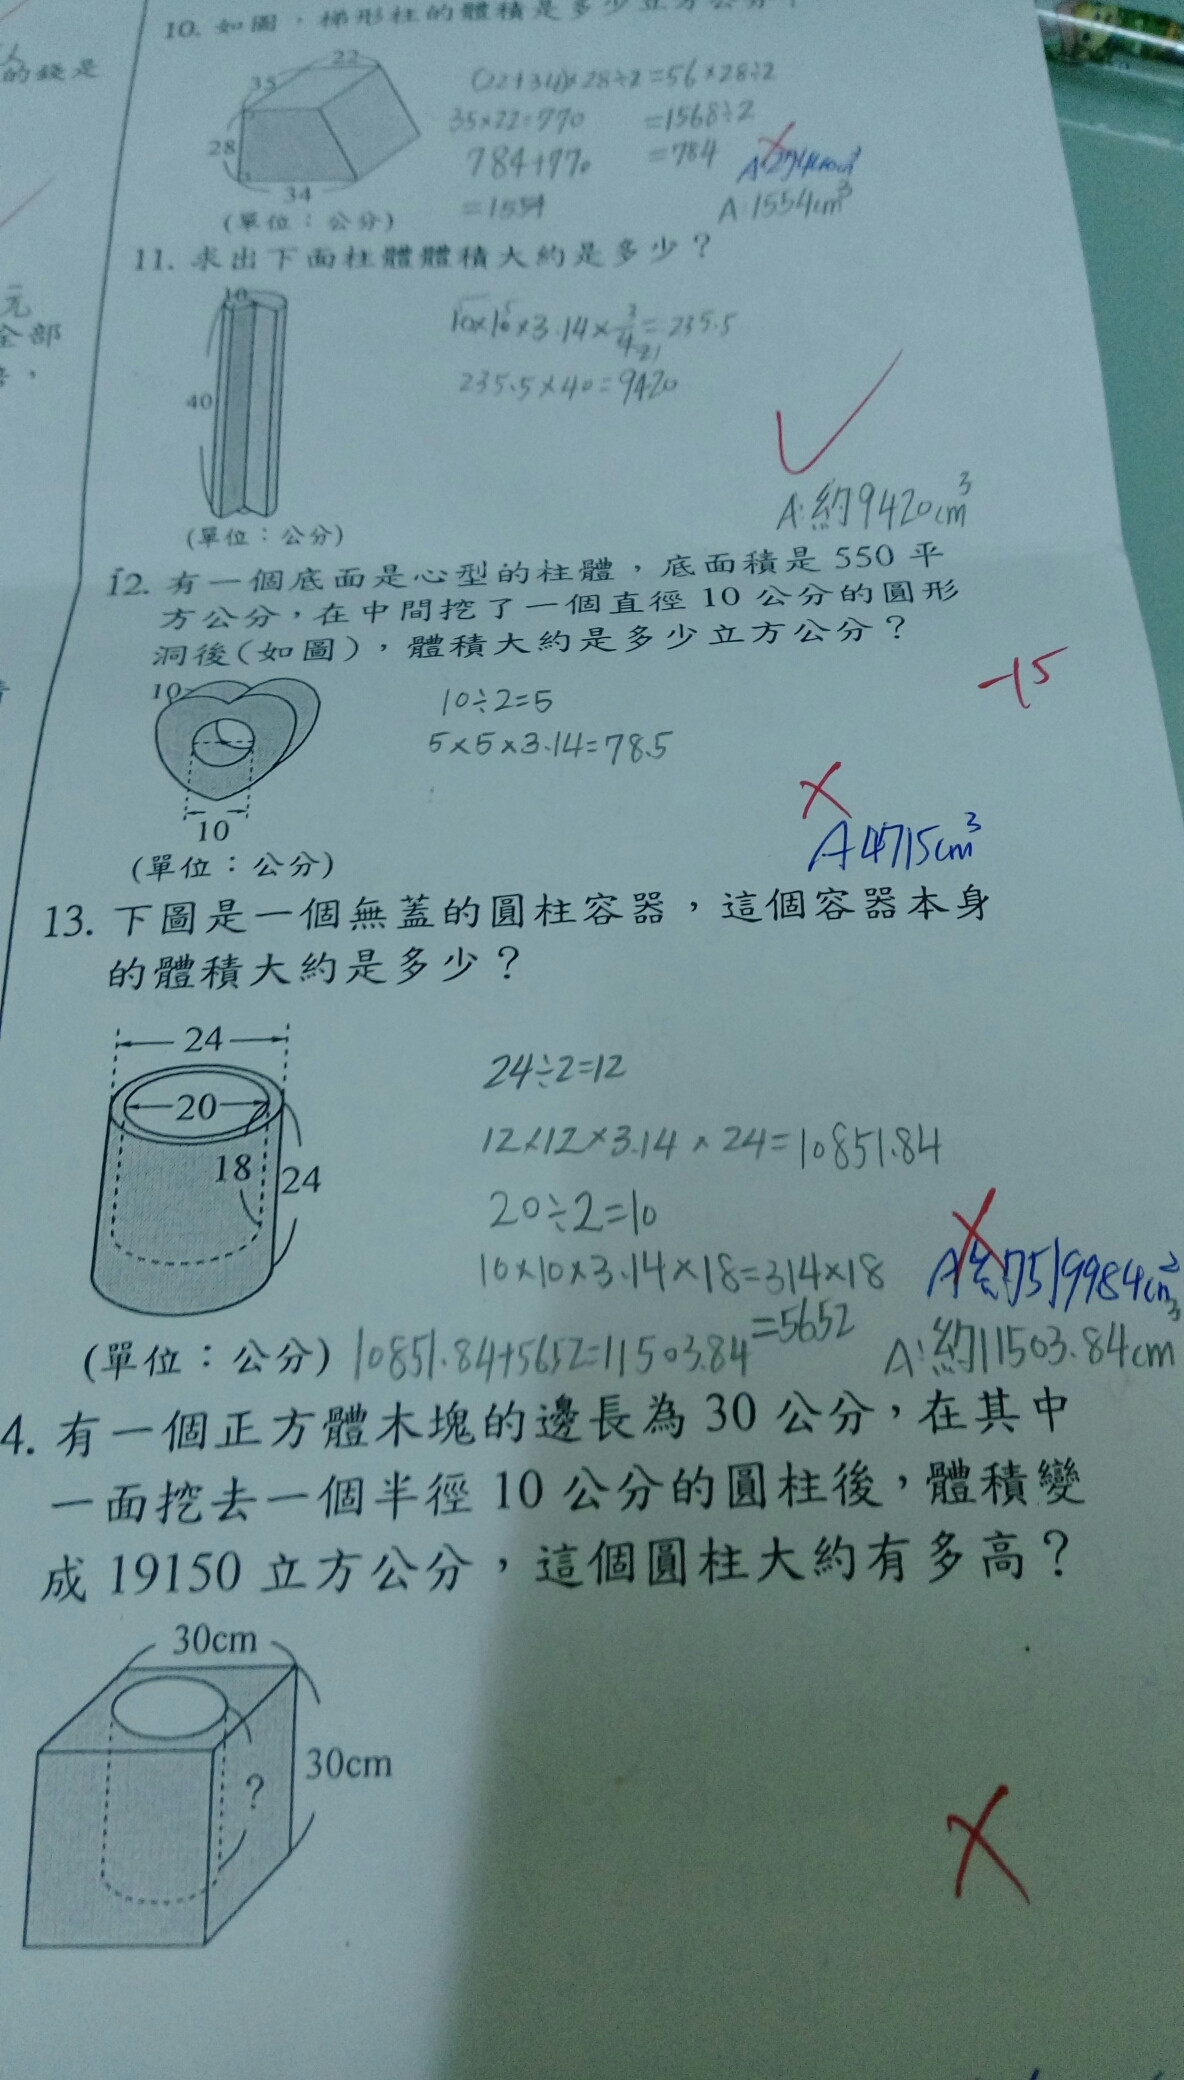 的錢是
元
全部
10. 如圖，梯形柱的體積是多少立方公分？
22
35
28
34
(單位：公分)
(22+34)×28÷2=56×28÷2
35×22=770
=1568÷2
784+770
=784
=1554
A:1554cm³
11. 求出下面柱體體積大約是多少？
10
40
(單位：公分)
10×10×3.14×3/4=235.5
235.5×40=9420
A:約9420cm³
12. 有一個底面是心型的柱體，底面積是 550 平
方公分，在中間挖了一個直徑 10 公分的圓形
洞後(如圖)，體積大約是多少立方公分？
-15
10
10
(單位：公分)
10÷2=5
5×5×3.14=78.5
A4715cm³
13. 下圖是一個無蓋的圓柱容器，這個容器本身
的體積大約是多少？
24
20
18
24
(單位：公分)
24÷2=12
12×12×3.14×24=10851.84
20÷2=10
10×10×3.14×18=314×18
=5652
10851.84+5652=11503.84
A:約11503.84cm³
4. 有一個正方體木塊的邊長為 30 公分，在其中
一面挖去一個半徑 10 公分的圓柱後，體積變
成 19150 立方公分，這個圓柱大約有多高？
30cm
30cm
?